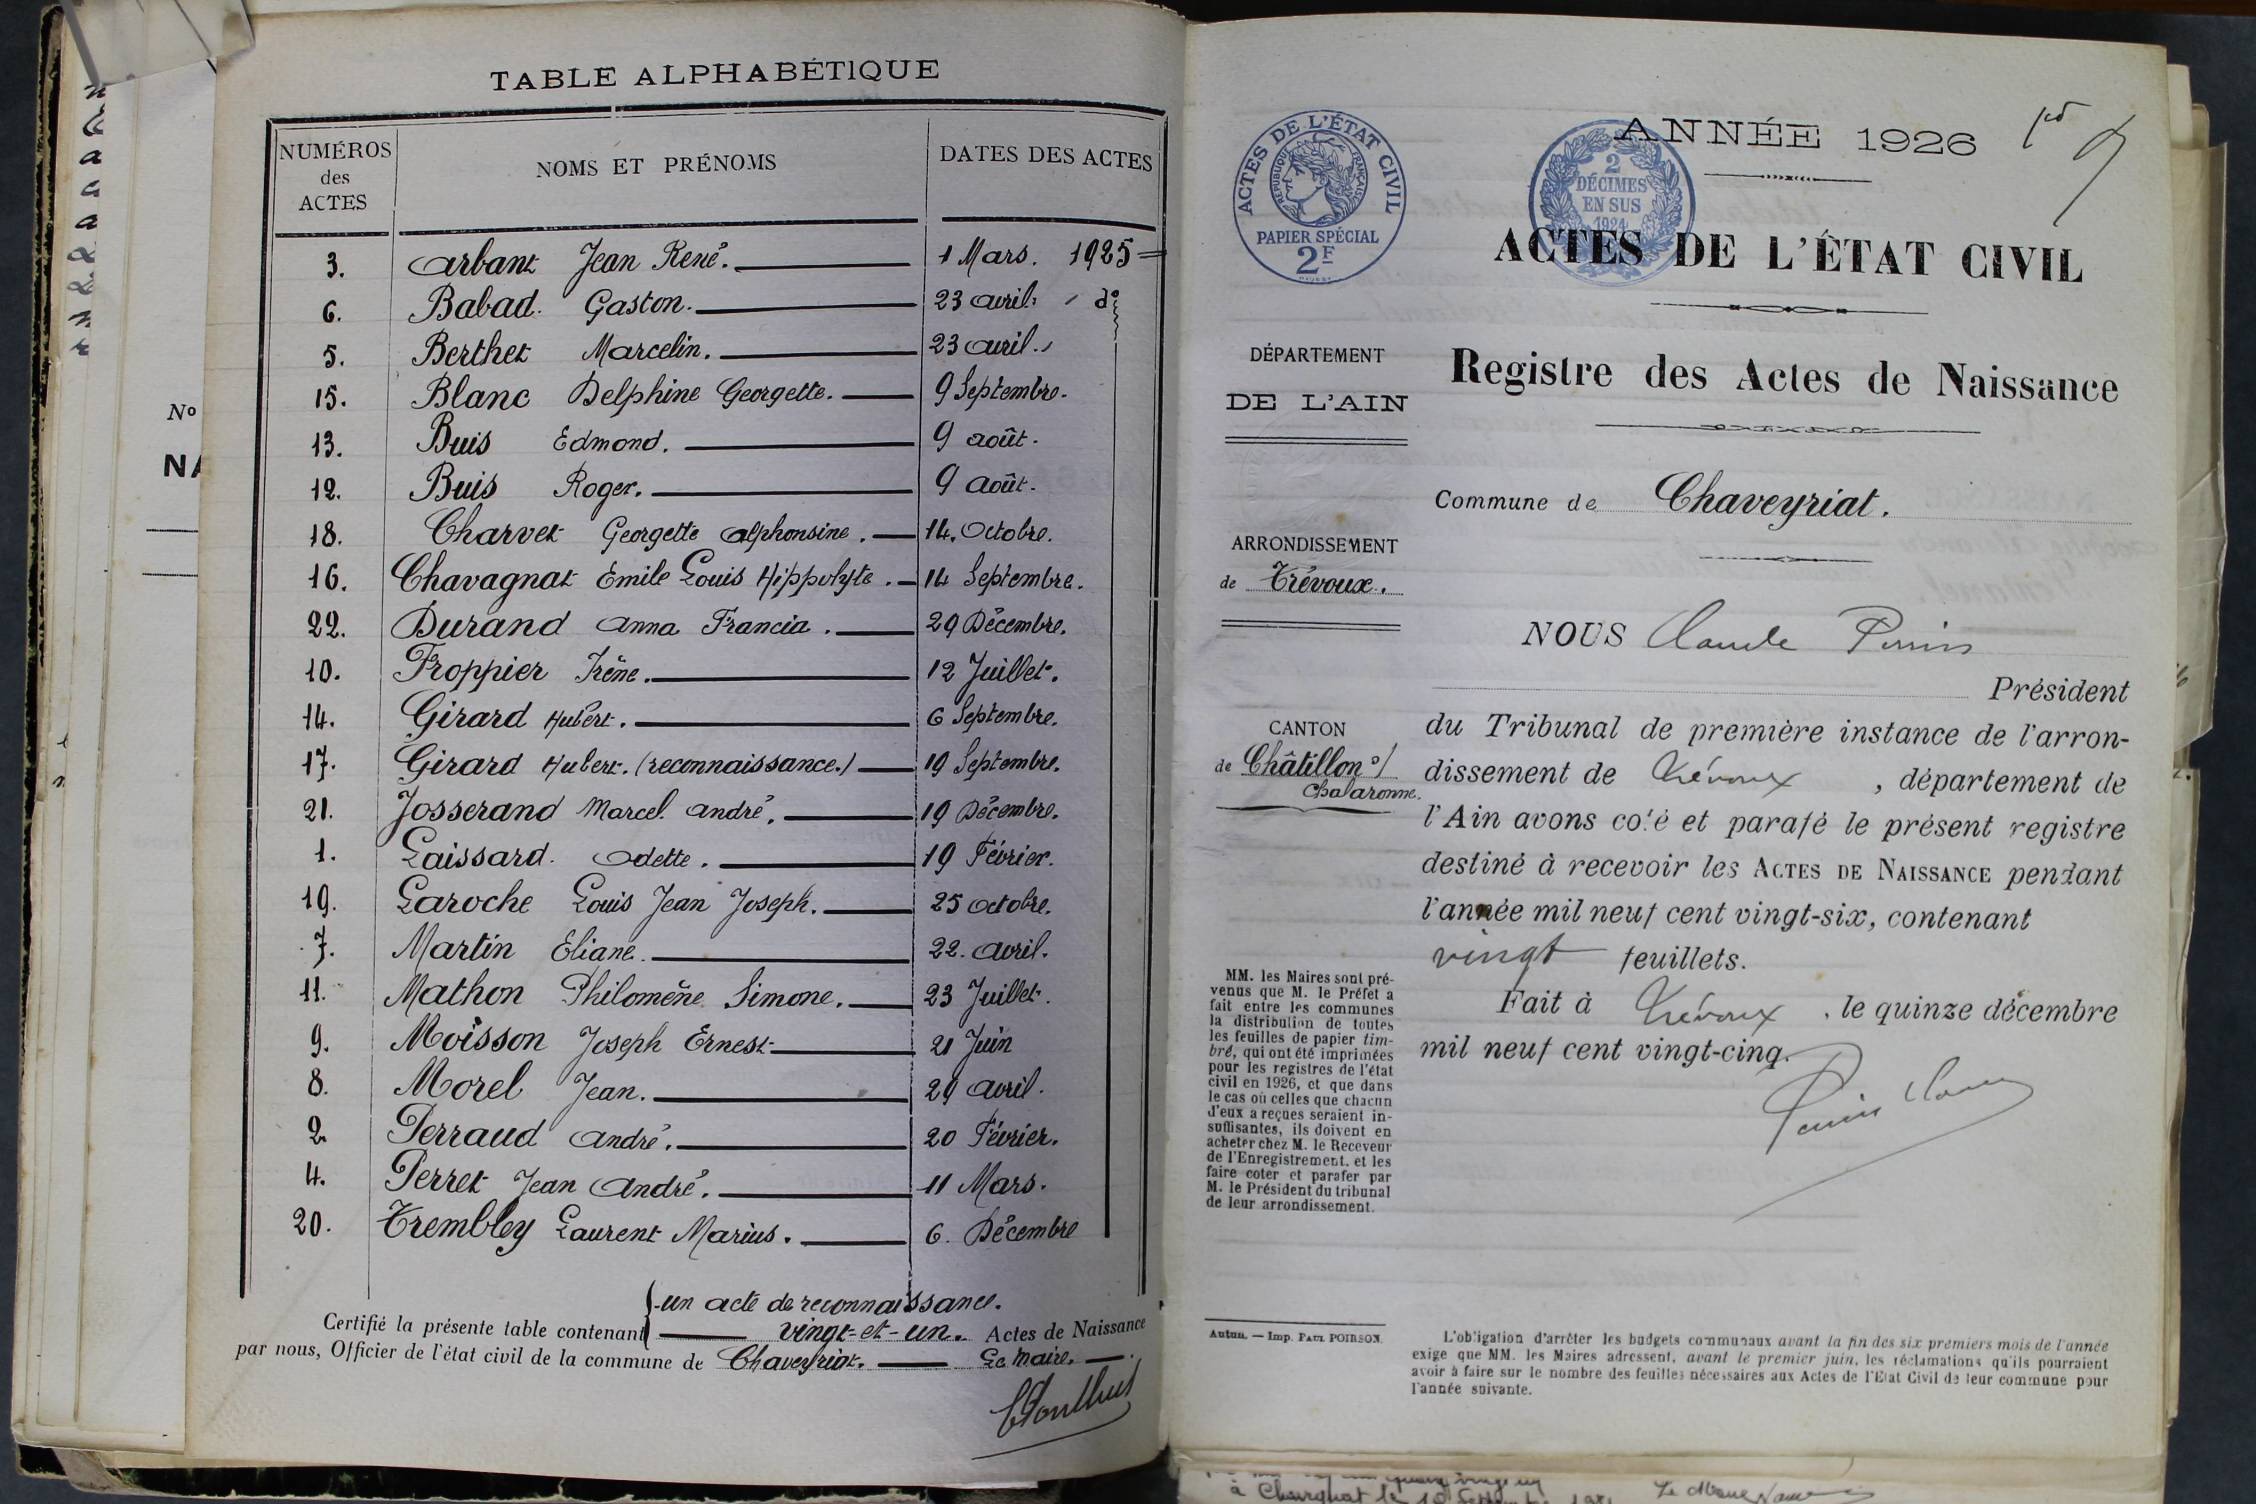 TABLE ALPHABÉTIQUE
NUMÉROS des ACTES NOMS ET PRÉNOMS DATES DES ACTES
3. Arbant Jean René. 1 Mars. 1925
6. Babad. Gaston. 23 avril. do
5. Berthet Marcelin. 23 avril.
15. Blanc Delphine Georgette. 9 Septembre.
13. Buis Edmond. 9 août.
12. Buis Roger. 9 août.
18. Charvet Georgette Alphonsine. 14. Octobre.
16. Chavagnat Emile Louis Hippolyte. 14 Septembre.
22. Durand Anna Francia. 29 Décembre.
10. Froppier Irène. 12 Juillet.
14. Girard Hubert. 6 Septembre.
17. Girard Hubert. (reconnaissance.) 19 Septembre.
21. Josserand Marcel André. 19 Décembre.
1. Laissard. Odette. 19 Février.
19. Laroche Louis Jean Joseph. 25 octobre.
7. Martin Eliane. 22. avril.
11. Mathon Philomène Simone. 23 Juillet.
9. Moisson Joseph Ernest 21 Juin
8. Morel Jean. 29 avril.
2. Perraud André. 20 Février.
4. Perret Jean André. 11 Mars.
20. Trembley Laurent Marius. 6. Décembre
un acte de reconnaissance.
Certifié la présente table contenant vingt-et-un. Actes de Naissance
par nous, Officier de l'état civil de la commune de Chaveyriat. Le Maire.
No
NA
ACTES DE L'ÉTAT CIVIL
RÉPUBLIQUE FRANÇAISE
PAPIER SPÉCIAL
2F
2
DÉCIMES
EN SUS
1924
ANNÉE 1926
ACTES DE L'ÉTAT CIVIL
Registre des Actes de Naissance
DÉPARTEMENT
DE L'AIN
Commune de Chaveyriat.
ARRONDISSEMENT
de Trévoux.
CANTON
de Châtillon s/
Chalaronne.
NOUS Claude Perrin
Président
du Tribunal de première instance de l'arron-
dissement de Trévoux, département de
l'Ain avons coté et parafé le présent registre
destiné à recevoir les ACTES DE NAISSANCE pendant
l'année mil neuf cent vingt-six, contenant
vingt feuillets.
Fait à Trévoux, le quinze décembre
mil neuf cent vingt-cinq.
Perrin Claude
MM. les Maires sont pré-
venus que M. le Préfet a
fait entre les communes
la distribution de toutes
les feuilles de papier tim-
bré, qui ont été imprimées
pour les registres de l'état
civil en 1926, et que dans
le cas où celles que chacun
d'eux a reçues seraient in-
suffisantes, ils doivent en
acheter chez M. le Receveur
de l'Enregistrement, et les
faire coter et parafer par
M. le Président du tribunal
de leur arrondissement.
Autun. — Imp. PAUL POIRSON.
L'obligation d'arrêter les budgets communaux avant la fin des six premiers mois de l'année
exige que MM. les Maires adressent, avant le premier juin, les réclamations qu'ils pourraient
avoir à faire sur le nombre des feuilles nécessaires aux Actes de l'Etat Civil de leur commune pour
l'année suivante.